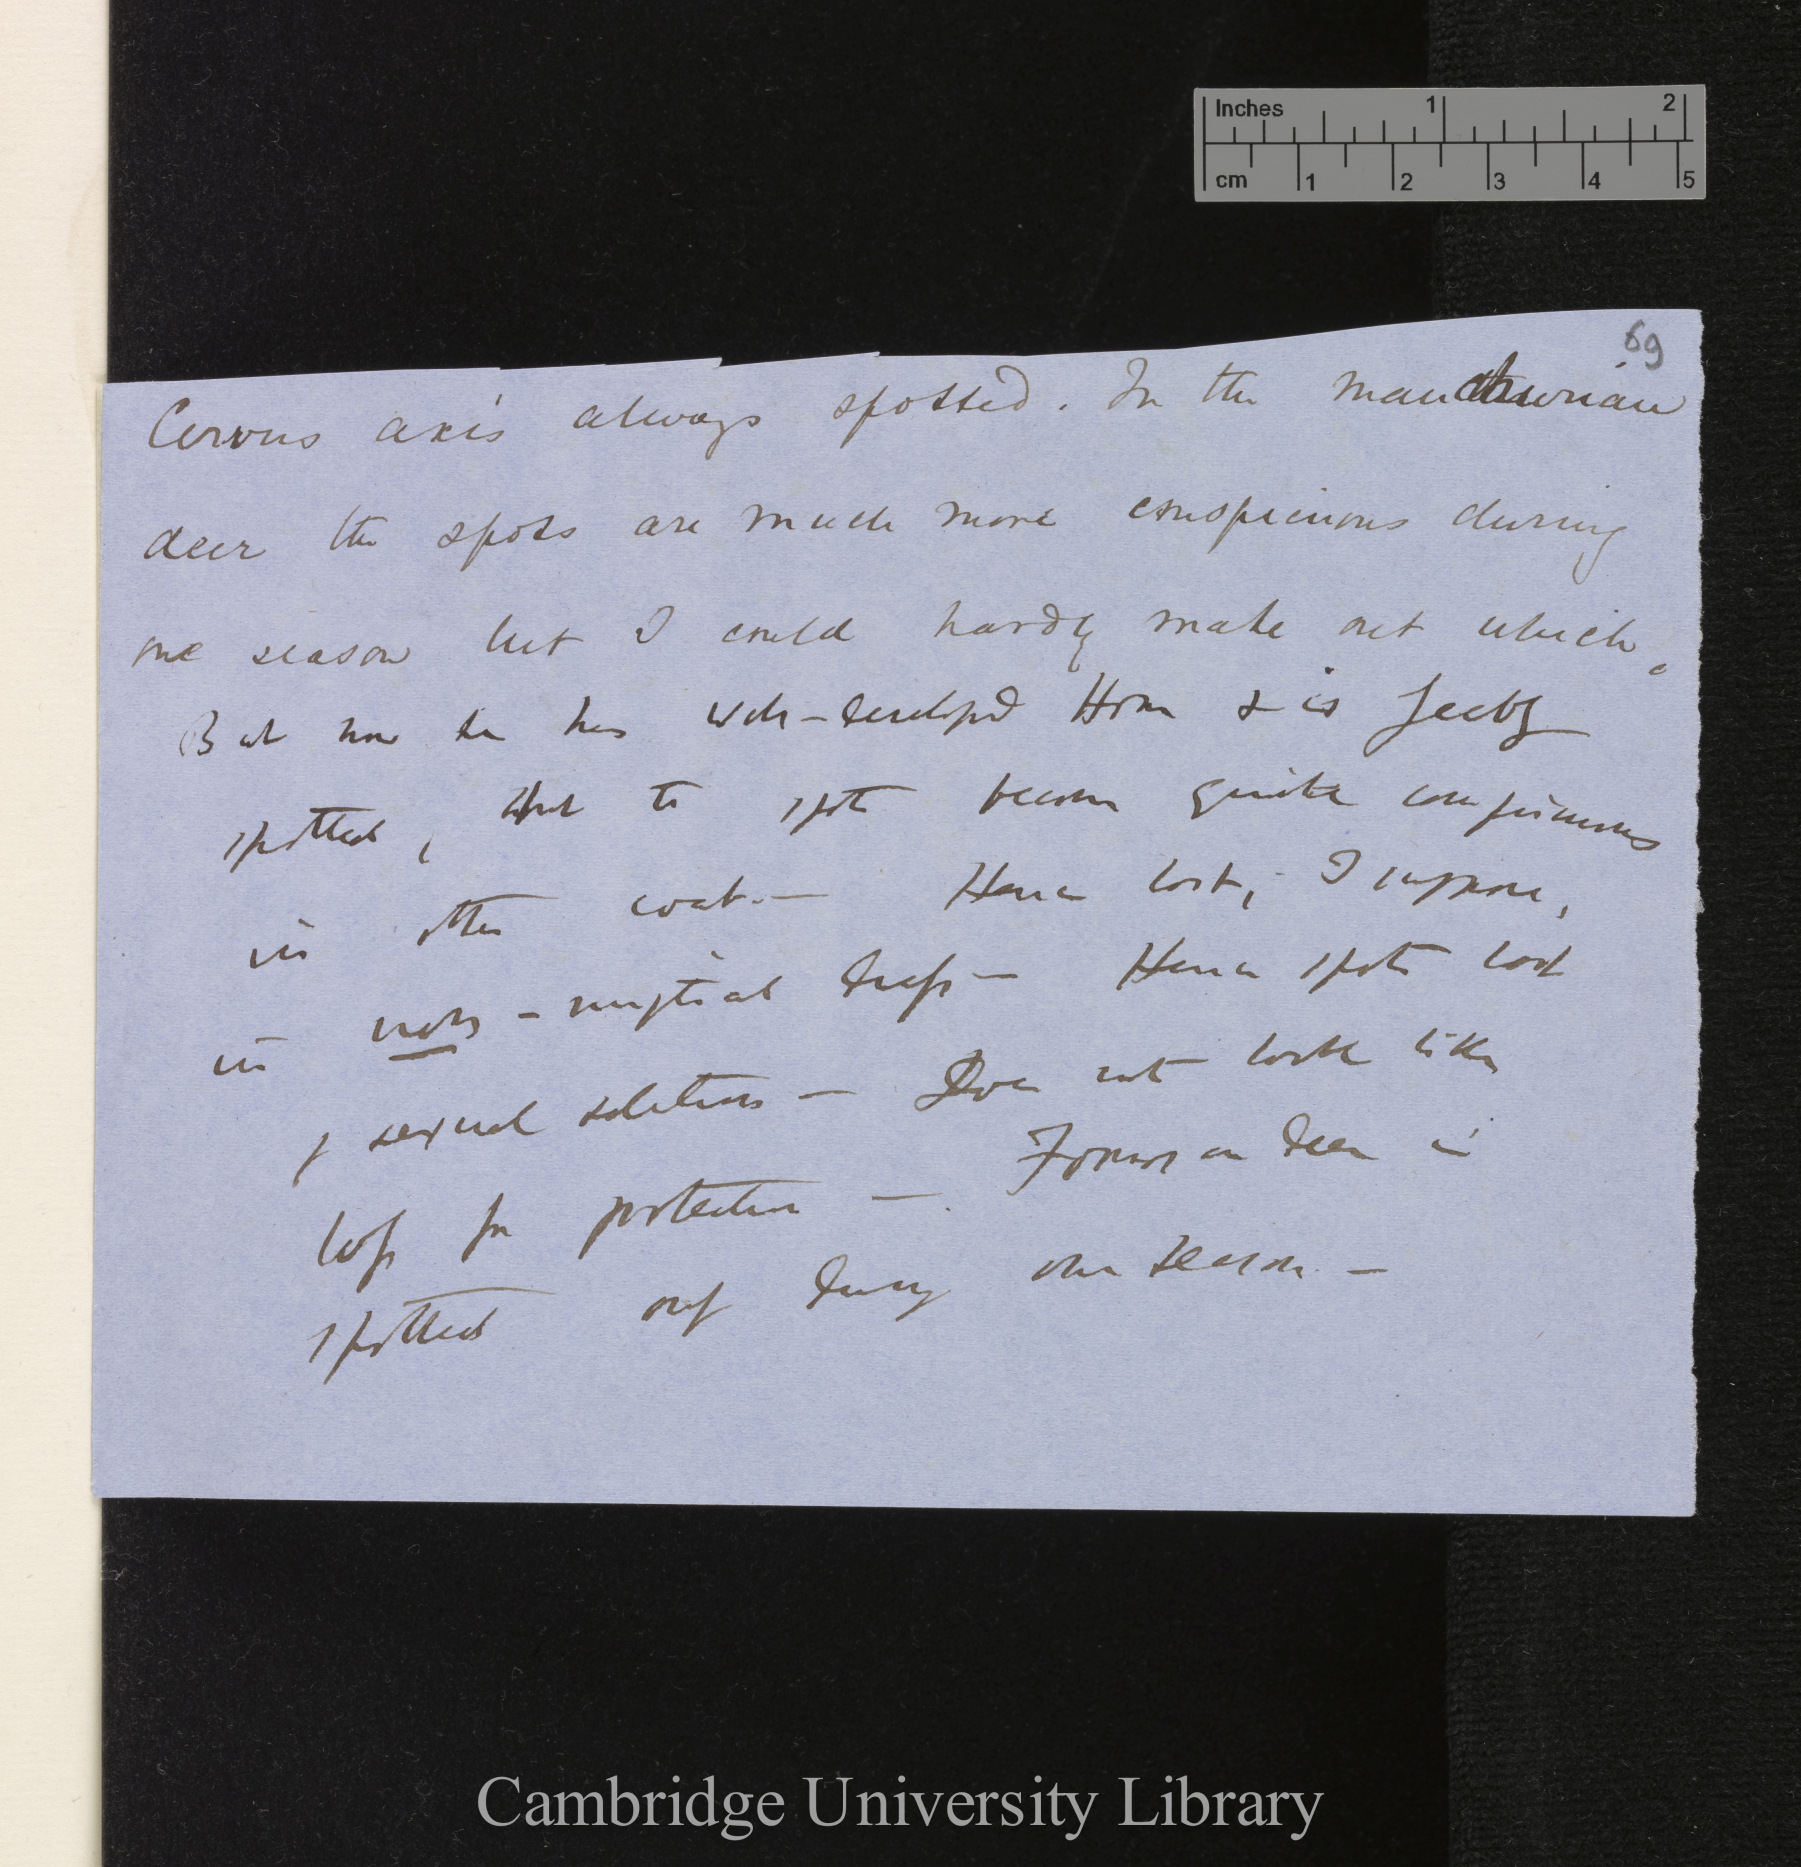 Inches 1 2
cm 1 2 3 4 5
69
Cervus axis always spotted. In the Manchurian
deer the spots are much more conspicuous during
one season but I could hardly make out which.
But now he has well-developed Horns & is feebly
spotted, that the spots become quite conspicuous
in other coat.— Hence lost, I suppose,
in non-nuptial dress— Hence spots lost
sexual selection — Does not look like
loss for protection — Formosan deer in
spotted only during one season.—
Cambridge University Library